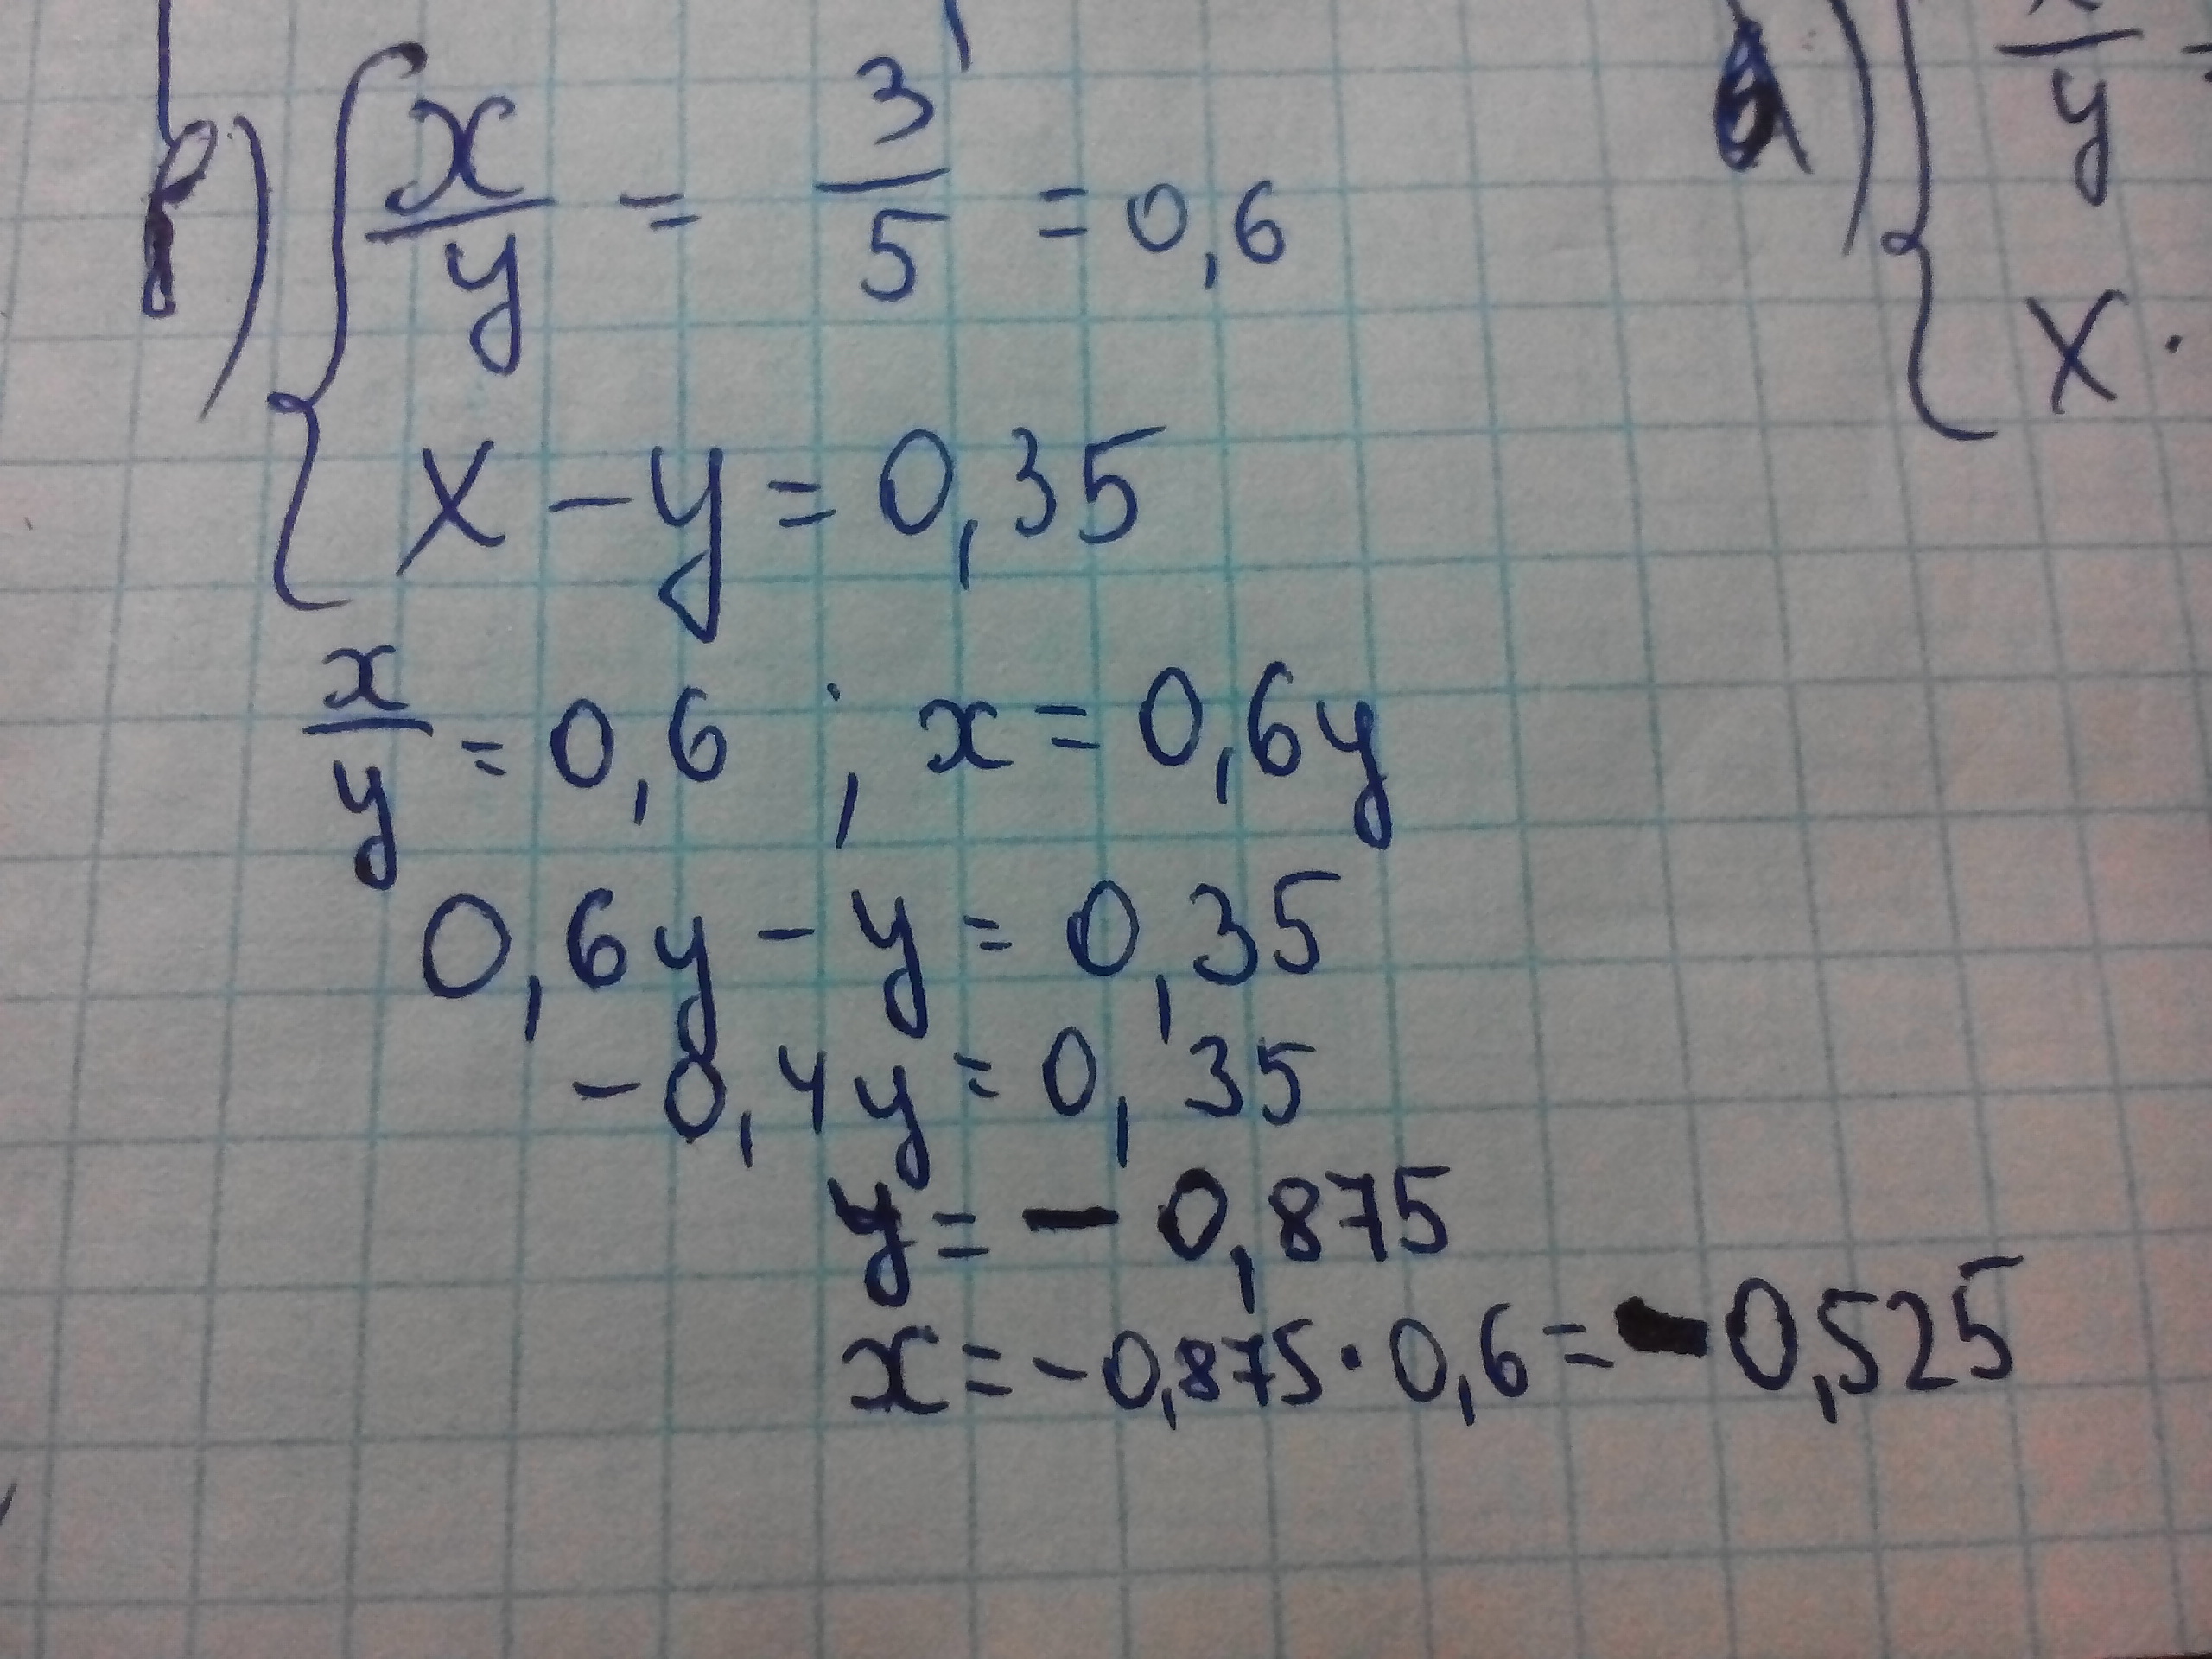 x/y = 3/5 = 0,6
x - y = 0,35
x/y = 0,6 ; x = 0,6y
0,6y - y = 0,35
-0,4y = 0,35
y = - 0,875
x = -0,875 · 0,6 = -0,525
y
x ·